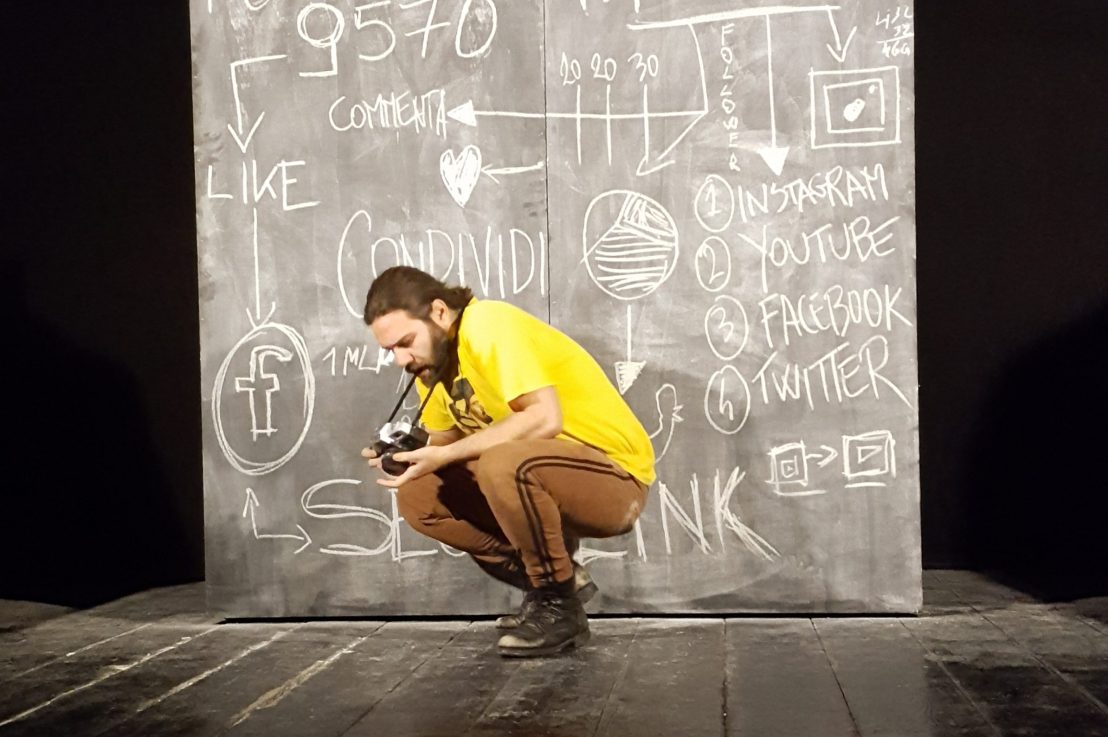 9570
FOLLOWER
20 20 30
COMMENTA
LIKE
CONDIVIDI
1 INSTAGRAM
2 YOUTUBE
3 FACEBOOK
4 TWITTER
f
1 MLN
LINK